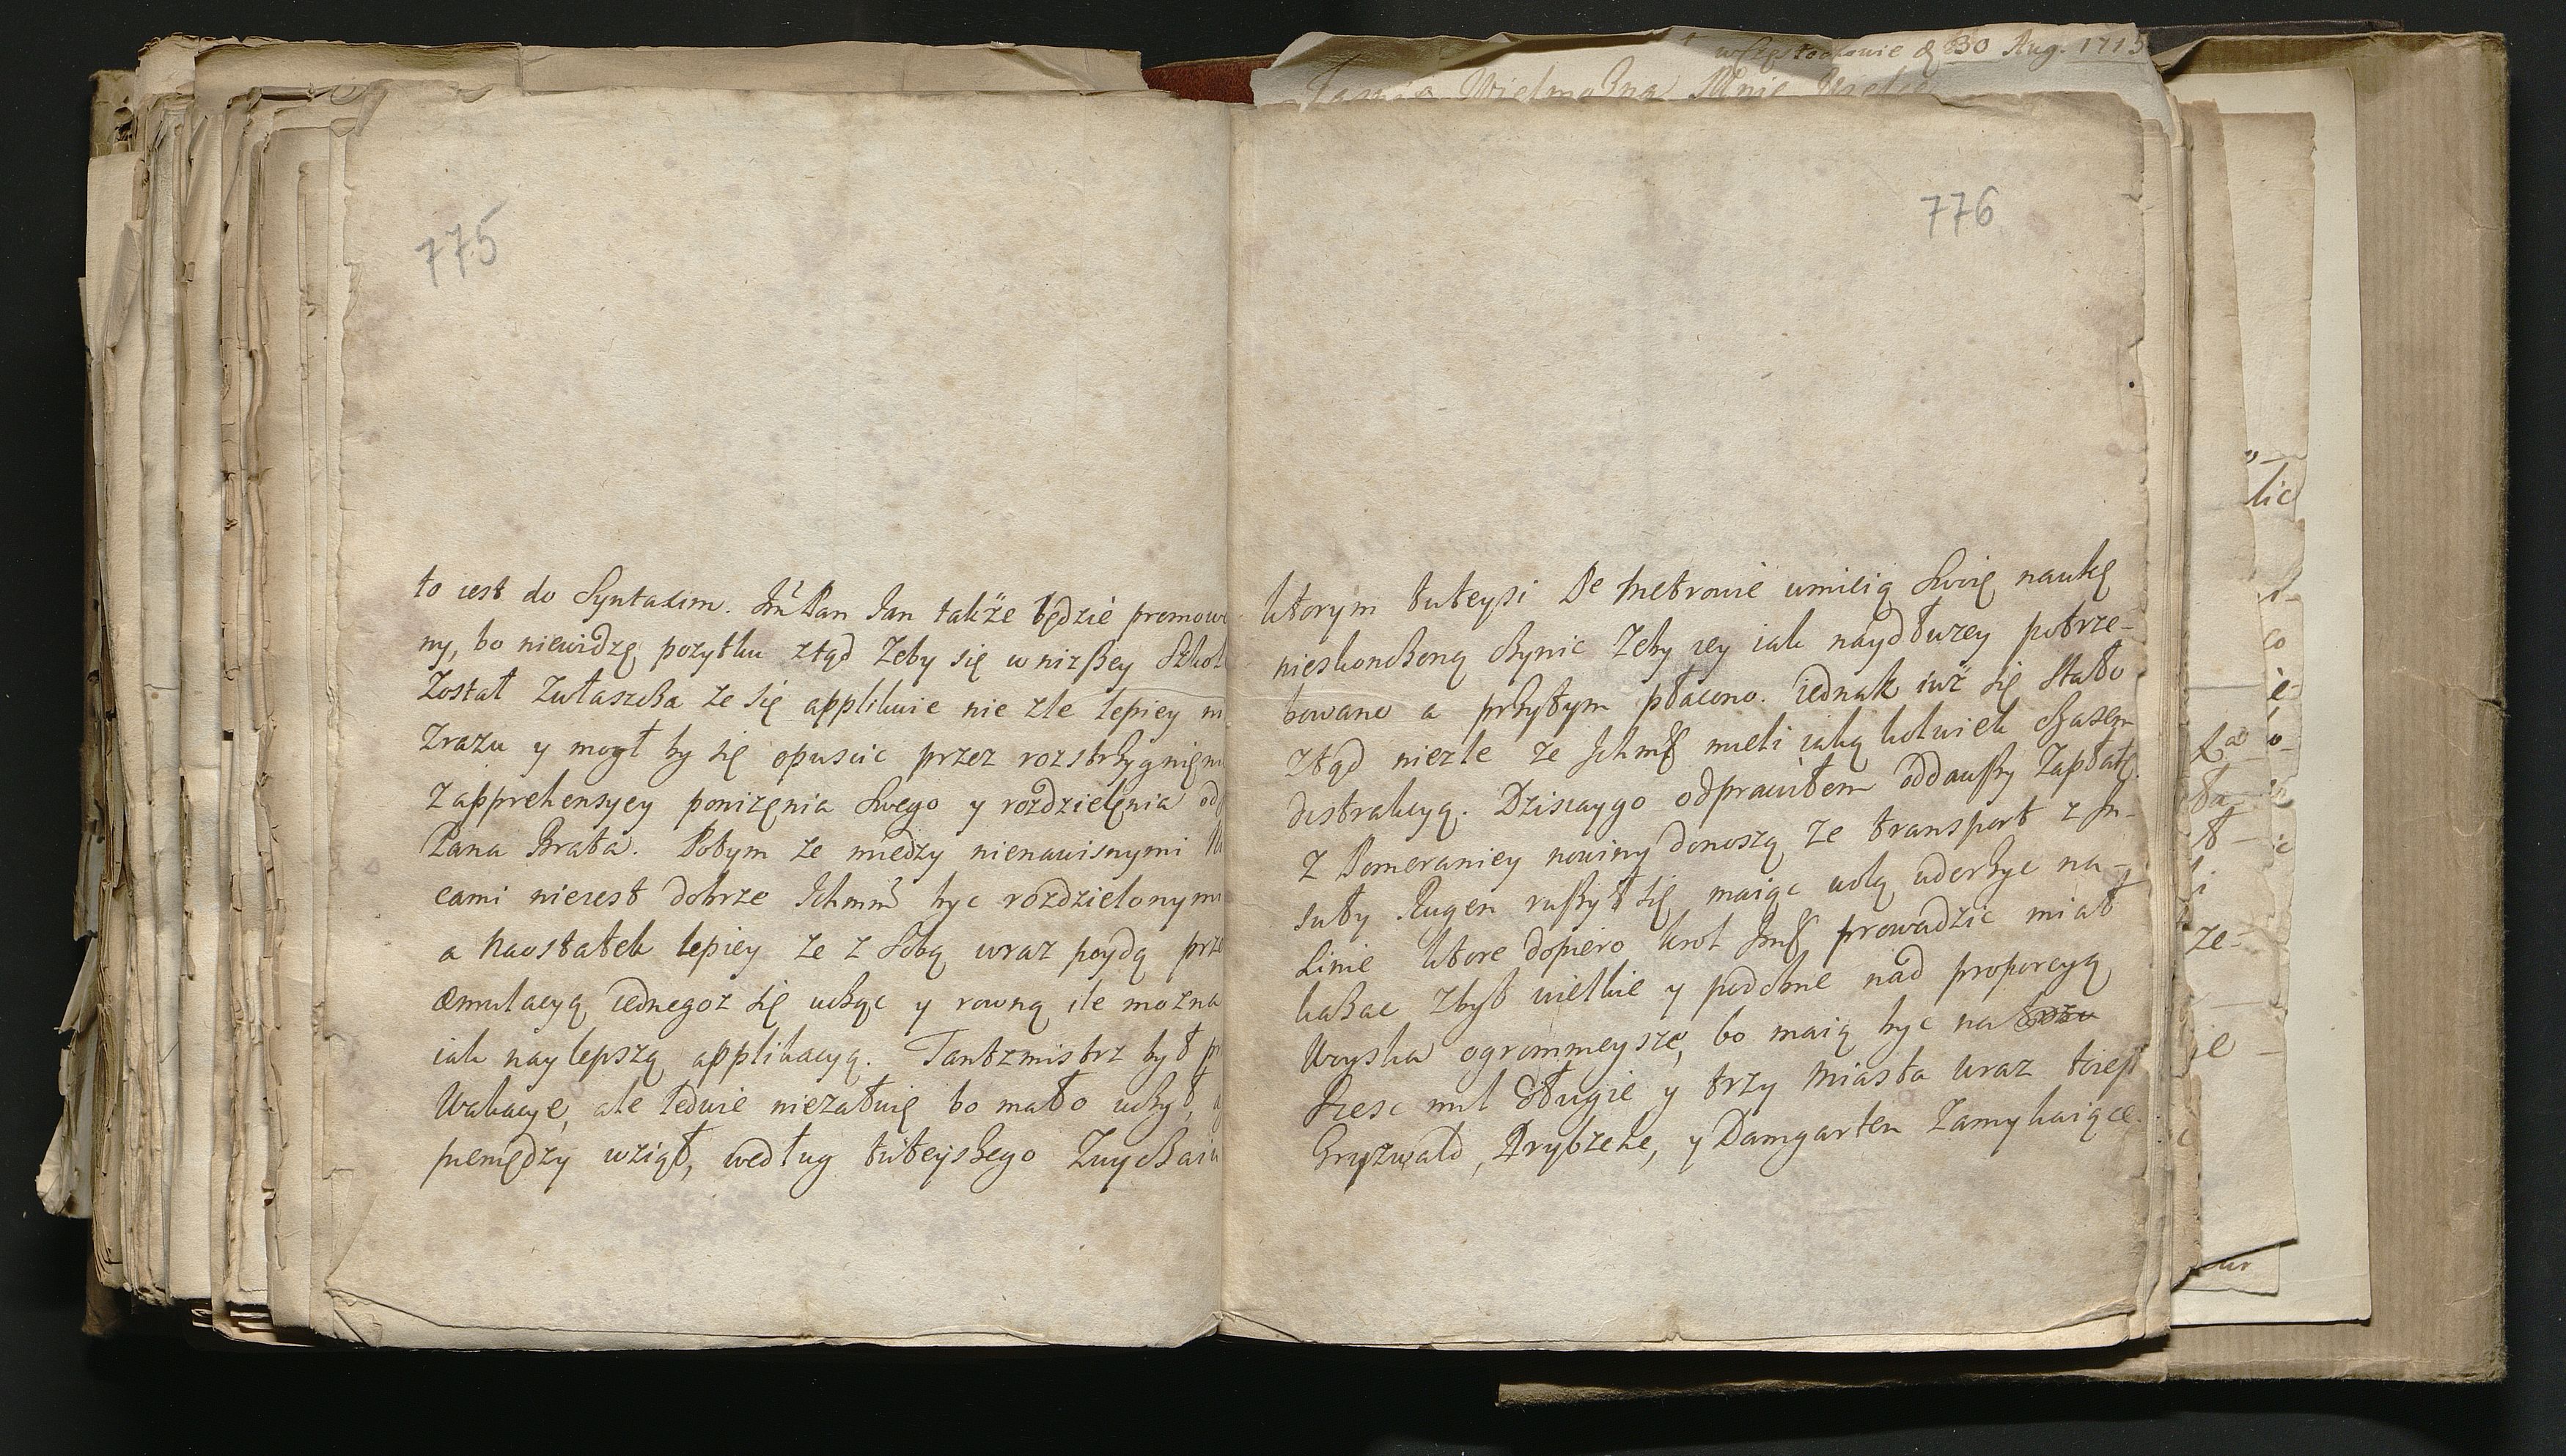 775
to iest do Syntaxim. Jmć Pan Jan także będzie promowa
ny, bo niewidzę pożytku ztąd żeby się w niższey Szkol
został zwłaszcza że się applikuie nie zle lepiey ni
zrazu y mogł by się opuscic przez rozstrzygnięni
z apprehensyey poniżęnia Swego y rozdzielęnia od
Pana Brata. Potym że między nienawisnymi
cami nieiest dobrze Ichmm być rozdzielonymi
a naostatek lepiey że z sobą wraz poydą prze
æmulacyą iednegoz się ucząc y rowną ile można
iak naylepszą applikacyą. Tantzmistrz był
Wakacye, ale ledwie niezałuię bo mało uczył,
pieniędzy wziął, według tuteyszego Zwyczaiu
776
ktorym tuteysi De Metrowie umieią Swoię naukę
nieskonczoną czynic żeby iey iak naydłużey potrze-
bowano a przytym płacono. iednak iuż się stało
ztąd niezle że Ichmć mieli iaką kolwiek czasem
distrakcyą. Dzisiaygo odprawiłem oddawszy Zapłatę.
Z Pomeraniey nowiny donoszą że transport z In-
suły Rugen ruszył się maiąc wolą uderzyc na-
Linie ktore dopiero krol Jmć prowadzic miał
kazac zbyt wielkie y podobne nad proporcyą
Woyska ogromnieysze, bo maią byc na
szesc mil długie y trzy Miasta wraz toiest
Gryzwald, Trybzehe, y Damgarten zamykaiące.
w Częstochowie d 30 Aug. 1715
Wielmożna Mnie
lic
co
ze-